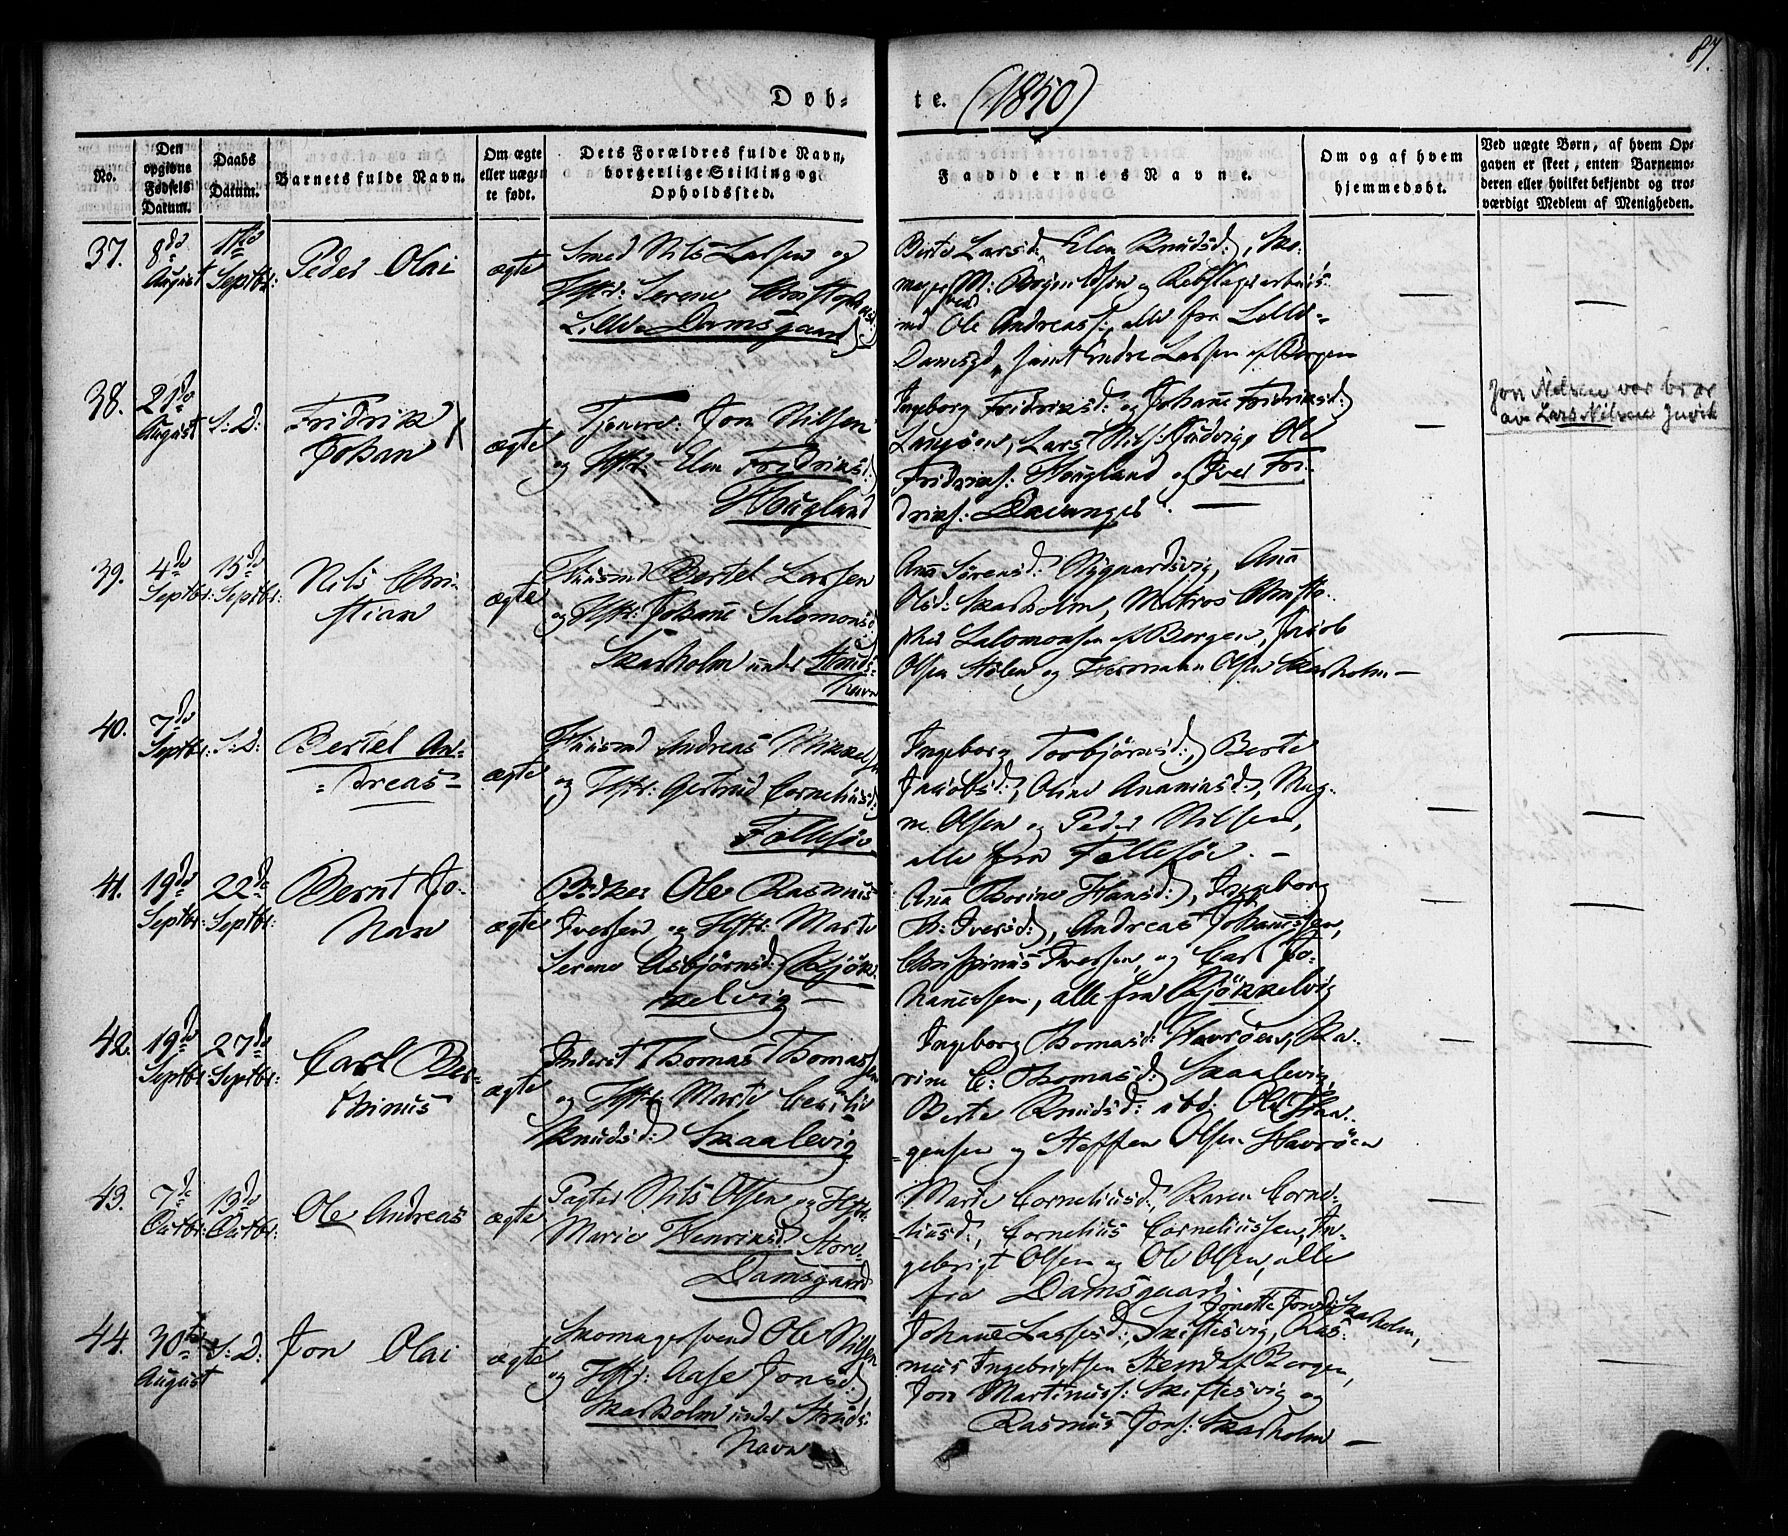 87.
Døb-
te. (1850)
No.
Den
opgivne
Fødsels
Datum.
Daabs
Datum.
Barnets fulde Navn.
Om ægte
eller uæg-
te født.
Dets Forældres fulde Navn,
borgerlige Stilling og
Opholdssted.
Faddernes Navne.
Om og af hvem
hjemmedøbt.
Ved uægte Børn, af hvem Op-
gaven er skeet, enten Barnemo-
deren eller hvilket bekjendt og tro-
værdigt Medlem af Menigheden.
37.
8de
August
1ste
Septbr:
Peder Olai
ægte
Smed Nils Larsen og
Hstr: Serene Christophersd:
Lille Damsgaard
Berte Larsd: Elen Knudsd:, Sko-
mager M: Børge Olsen og Rebslagerarbeids-
md Ole Andreass:, alle fra Lille-
Damsgd, samt Endre Larsen af Bergen
38.
21de
August
S: D:
Fridrik
Johan
ægte
Tjener: Jon Nilsen
og Hstr: Elen Fridriksd:
Hougland
Ingeborg Fridriksd: og Johane Fridriksd:
Lars Nils: Ole
Fridriks: Hougland og Iver Fri-
driks: Davanger. —
Jon Nilsen var bror
av Lars Nilsen Juvik
39.
4de
Septbr:
15de
Septbr:
Nils Chri-
stian
ægte
Huusmd Bertel Larsen
og Hstr: Johane Salomonsd:
Skarholm under Struds-
havn
Ana Sørensd: Nygaardsvig, Ana
Olsd: Skarholm, Matros Christo-
pher Salomonsen af Bergen, Jacob
Olsen Stølen og Hermann Olsen Skarholm —
40.
7de
Septbr:
S: D:
Bertel An-
dreas
ægte
Huusmd Andreas Mikkels:
og Hstr: Gertrud Corneliusd:
Follesøe
Ingeborg Torbjørnsd:, Berte
Jacobsd:, Oline Ananiasd:, Mag-
ne Olsen og Peder Nilsen,
alle fra Follesøe. —
41.
19de
Septbr:
22de
Septbr:
Bernt Jo-
han
ægte
Bødker Ole Rasmus
Iversen og Hstr: Marte
Serene Asbjørnsd: Kjøk-
kelvig —
Ana Thorine Hansd:, Ingeborg
Iversd:, Andreas Johannesen,
Chrispinus Iversen og Carl Jo-
hannessen, alle fra Kjøkkelvig
42.
19de
Septbr:
27de
Septbr:
Carl Ber-
thinus
ægte
Inderst Thomas Thomassen
og Hstr: Marte Cecilie
Knudsd: Skaalevig
Ingeborg Thomasd: Havrøen, Ka-
rine C: Thomasd: Skaalevig,
Berte Knudsd: ibd. Ole Haa-
gensen og Steffen Olsen Havrøen
43.
7de
Octbr:
13de
Octbr:
Ole Andreas
ægte
Pagter Nils Olsen og Hstr:
Marie Henriksd: Store-
Damsgaard
Marie Corneliusd:, Karen Corne-
liusd:, Cornelius Corneliussen, In-
gebrigt Olsen og Ole Olsen, alle
fra Damsgaard.
44.
30te
August
S: D:
Jon Olai
ægte
Skomagersvend Ole Nilsen
og Hstr: Aase Jonsd:
Skarholm under Struds-
havn
Jonette Jonsd: Skarholm,
Johane Lassesd: Skiftesvig, Ras-
mus Ingebrigtsen af Bergen,
Jon Martinuss: Skiftesvig og
Rasmus Jons: Skarholm —